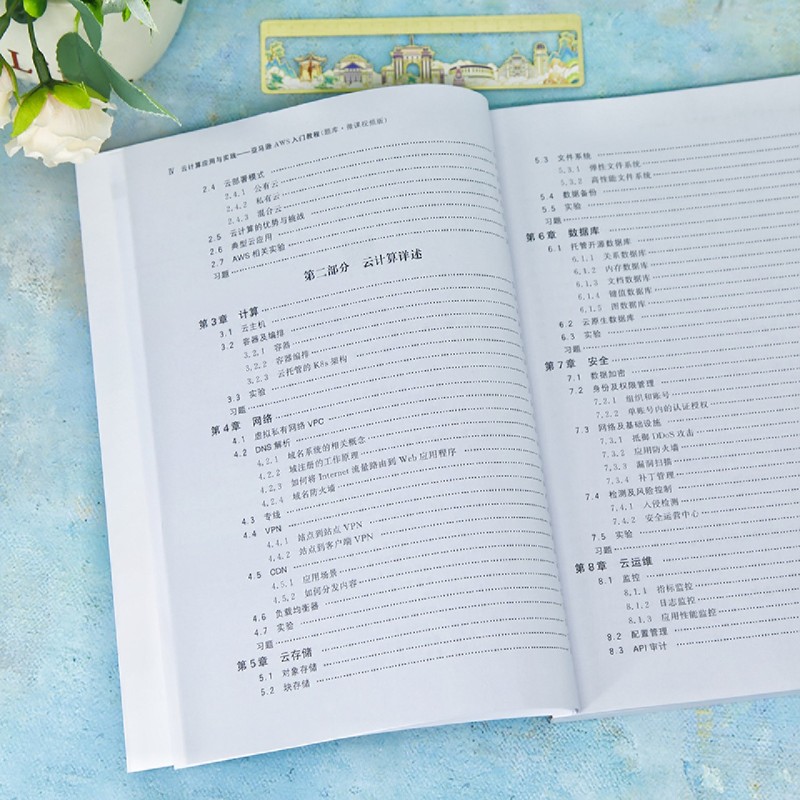 Ⅳ 云计算应用与实践——亚马逊 AWS 入门教程(题库·微课视频版)
2.4 云部署模式
2.4.1 公有云
2.4.2 私有云
2.4.3 混合云
2.5 云计算的优势与挑战
2.6 典型云应用
2.7 AWS 相关实验
习题
第二部分 云计算详述
第3章 计算
3.1 云主机
3.2 容器及编排
3.2.1 容器
3.2.2 容器编排
3.2.3 云托管的 K8s 架构
3.3 实验
习题
第4章 网络
4.1 虚拟私有网络 VPC
4.2 DNS 解析
4.2.1 域名系统的相关概念
4.2.2 域注册的工作原理
4.2.3 如何将 Internet 流量路由到 Web 应用程序
4.2.4 域名防火墙
4.3 专线
4.4 VPN
4.4.1 站点到站点 VPN
4.4.2 站点到客户端 VPN
4.5 CDN
4.5.1 应用场景
4.5.2 如何分发内容
4.6 负载均衡器
4.7 实验
习题
第5章 云存储
5.1 对象存储
5.2 块存储
5.3 文件系统
5.3.1 弹性文件系统
5.3.2 高性能文件系统
5.4 数据备份
5.5 实验
习题
第6章 数据库
6.1 托管开源数据库
6.1.1 关系数据库
6.1.2 内存数据库
6.1.3 文档数据库
6.1.4 键值数据库
6.1.5 图数据库
6.2 云原生数据库
6.3 实验
习题
第7章 安全
7.1 数据加密
7.2 身份及权限管理
7.2.1 组织和账号
7.2.2 单账号内的认证授权
7.3 网络及基础设施
7.3.1 抵御 DDoS 攻击
7.3.2 应用防火墙
7.3.3 漏洞扫描
7.3.4 补丁管理
7.4 检测及风险控制
7.4.1 入侵检测
7.4.2 安全运营中心
7.5 实验
习题
第8章 云运维
8.1 监控
8.1.1 指标监控
8.1.2 日志监控
8.1.3 应用性能监控
8.2 配置管理
8.3 API 审计